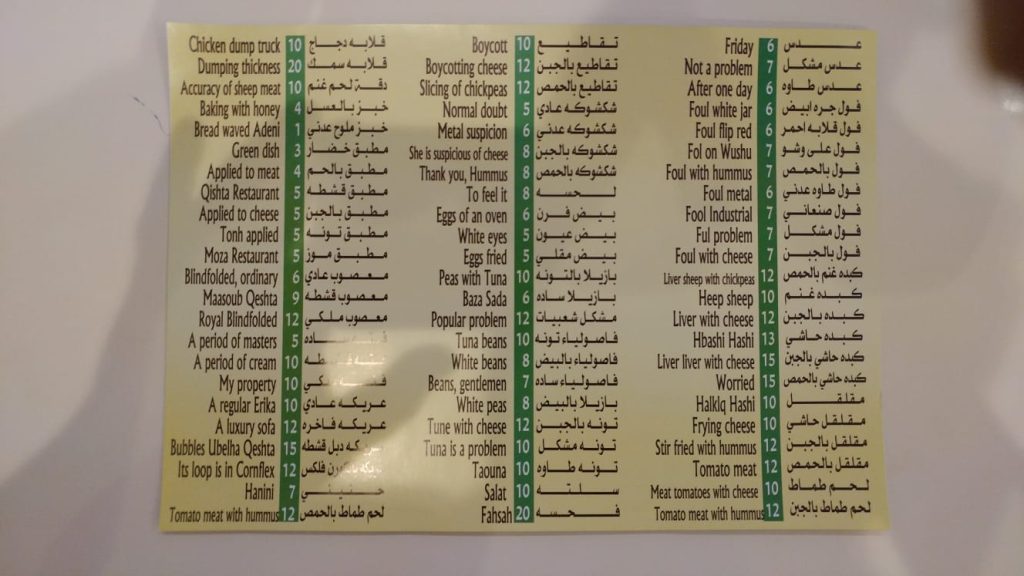 Chicken dump truck 10 قلابه دجاج
Dumping thickness 20 قلابه سمك
Accuracy of sheep meat 10 دقة لحم غنم
Baking with honey 4 خبز بالعسل
Bread waved Adeni 1 خبز ملوح عدني
Green dish 3 مطبق خضار
Applied to meat 4 مطبق بالحم
Qishta Restaurant 5 مطبق قشطه
Applied to cheese 5 مطبق بالجبن
Tonh applied 5 مطبق تونه
Moza Restaurant 5 مطبق موز
Blindfolded, ordinary 6 معصوب عادي
Maasoub Qeshta 9 معصوب قشطه
Royal Blindfolded 12 معصوب ملكي
A period of masters 5 ساده
A period of cream 10
My property 10
A regular Erika 10 عريكه عادي
A luxury sofa 12 عريكه فاخره
Bubbles Ubelha Qeshta 15 عريكه دبل قشطه
Its loop is in Cornflex 12 فلكس
Hanini 7 حنيني
Tomato meat with hummus 12 لحم طماط بالحمص
Boycott 10 تقاطيع
Boycotting cheese 12 تقاطيع بالجبن
Slicing of chickpeas 12 تقاطيع بالحمص
Normal doubt 5 شكشوكه عادي
Metal suspicion 6 شكشوكه عدني
She is suspicious of cheese 8 شكشوكه بالجبن
Thank you, Hummus 8 شكشوكه بالحمص
To feel it 8 لحسه
Eggs of an oven 6 بيض فرن
White eyes 5 بيض عيون
Eggs fried 5 بيض مقلي
Peas with Tuna 10 بازيلا بالتونه
Baza Sada 6 بازيلا ساده
Popular problem 12 مشكل شعبيات
Tuna beans 10 فاصولياء تونه
White beans 8 فاصولياء بالبيض
Beans, gentlemen 7 فاصولياء ساده
White peas 8 بازيلا بالبيض
Tune with cheese 12 تونه بالجبن
Tuna is a problem 10 تونه مشكل
Taouna 10 تونه طاوه
Salat 10 سلته
Fahsah 20 فحسه
Friday 6 عدس
Not a problem 7 عدس مشكل
After one day 6 عدس طاوه
Foul white jar 6 فول جره ابيض
Foul flip red 6 فول قلابه احمر
Fol on Wushu 7 فول على وشو
Foul with hummus 7 فول بالحمص
Foul metal 6 فول طاوه عدني
Fool Industrial 7 فول صنعاني
Ful problem 7 فول مشكل
Foul with cheese 7 فول بالجبن
Liver sheep with chickpeas 12 كبده غنم بالحمص
Heep sheep 10 كبده غنم
Liver with cheese 12 كبده بالجبن
Hbashi Hashi 13 كبده حاشي
Liver liver with cheese 15 كبده حاشي بالجبن
Worried 15 كبده حاشي بالحمص
Halklq Hashi 10 مقلقل
Frying cheese 10 مقلقل حاشي
Stir fried with hummus 12 مقلقل بالجبن
Tomato meat 12 مقلقل بالحمص
Meat tomatoes with cheese 10 لحم طماط
Tomato meat with hummus 12 لحم طماط بالجبن